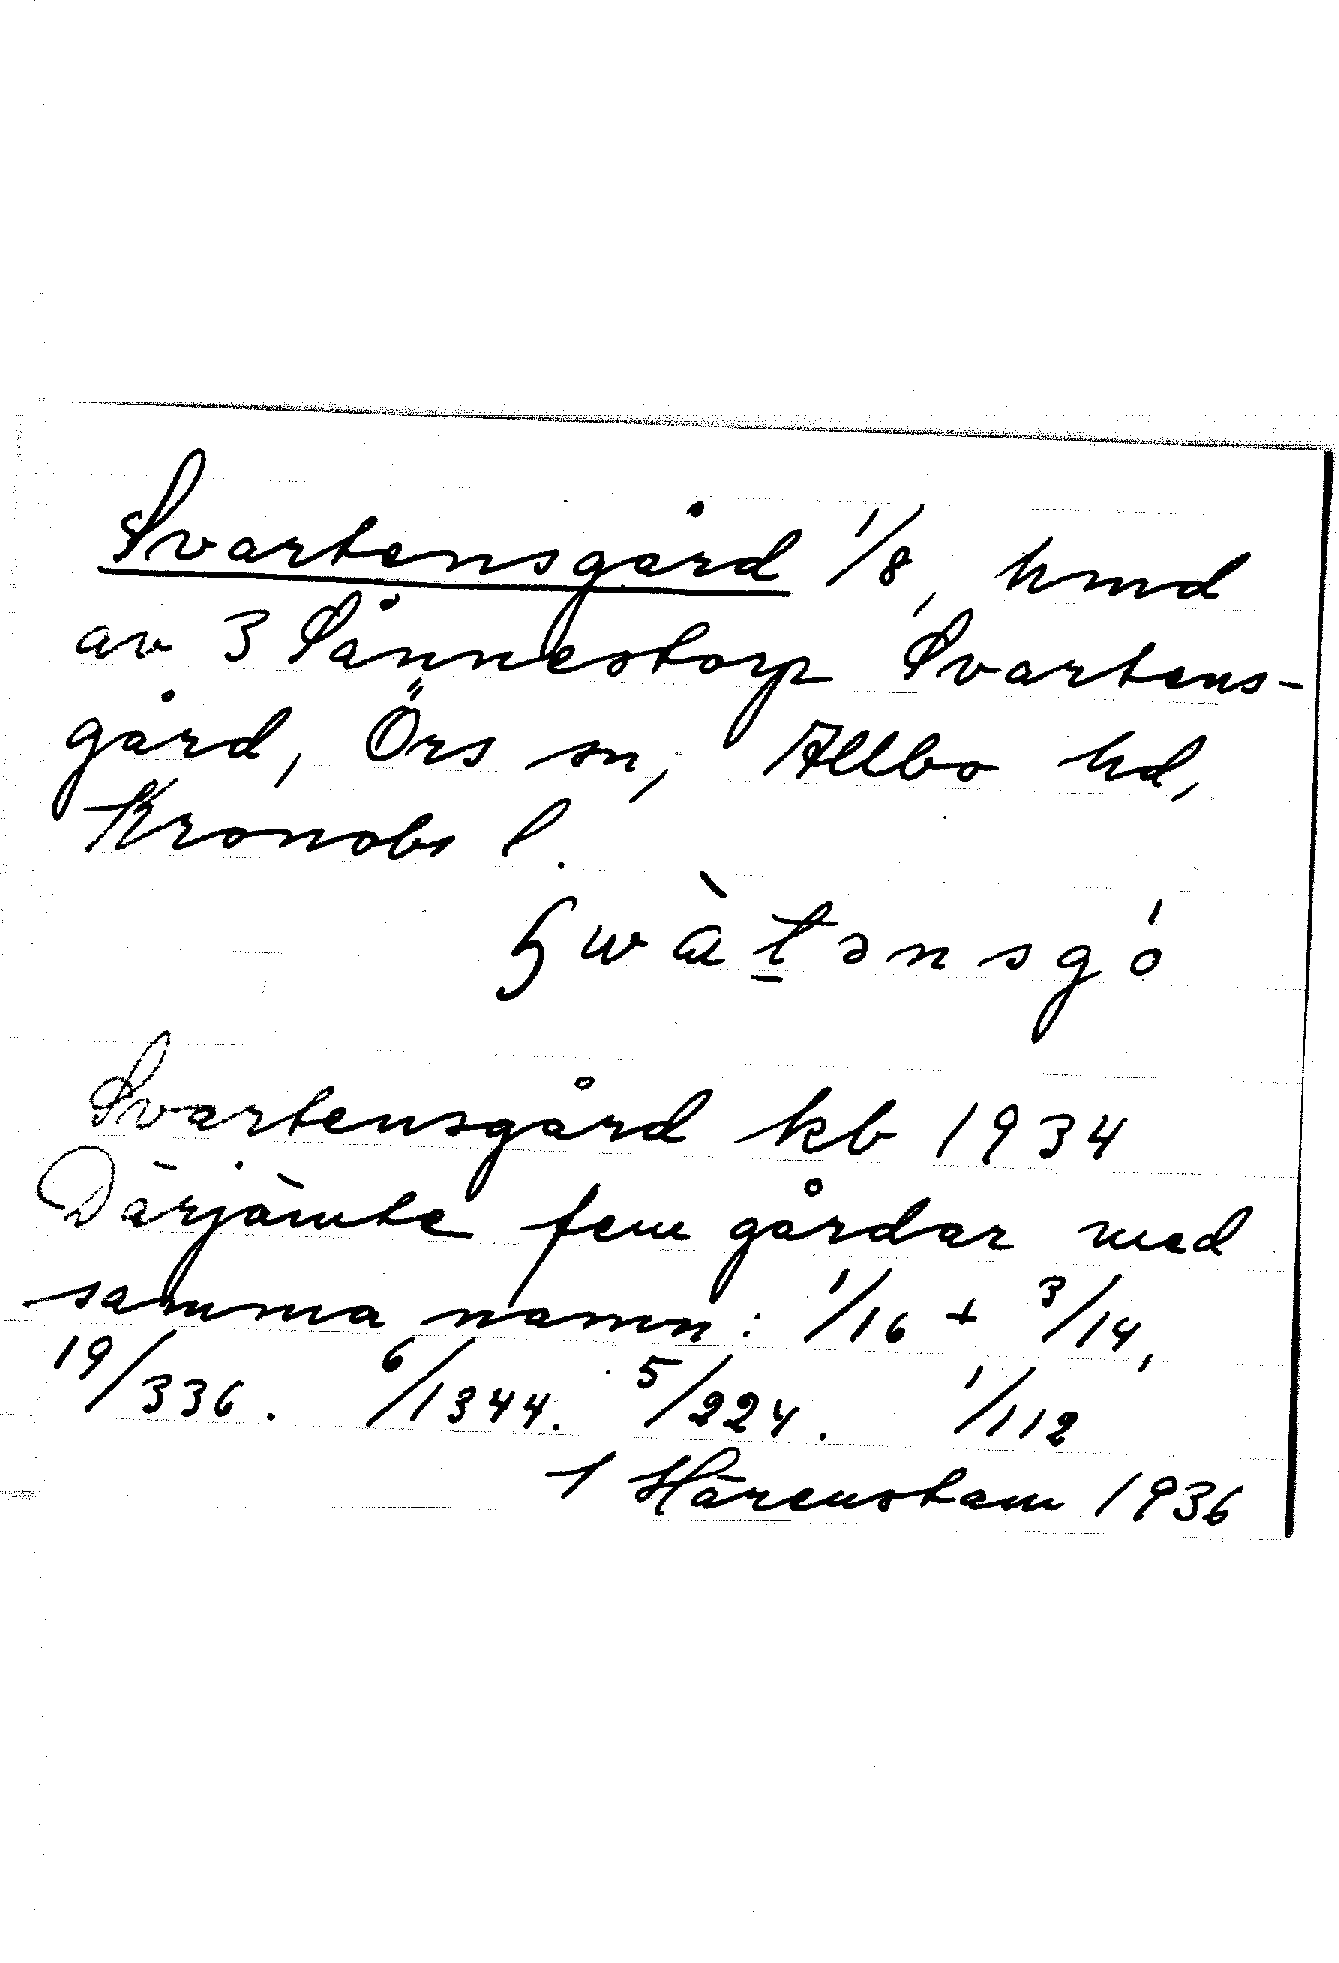 Svartensgård 1/8, hmd
av 3 Sånnestorp Svartens-
gård, Örs sn, Allbo hd,
Kronobs l.
Svartensgård kb 1934
Därjämte fem gårdar med
samma namn: 1/16 + 3/14,
19/336. 6/1344. 5/224. 1/112
1 Härenstam 1936